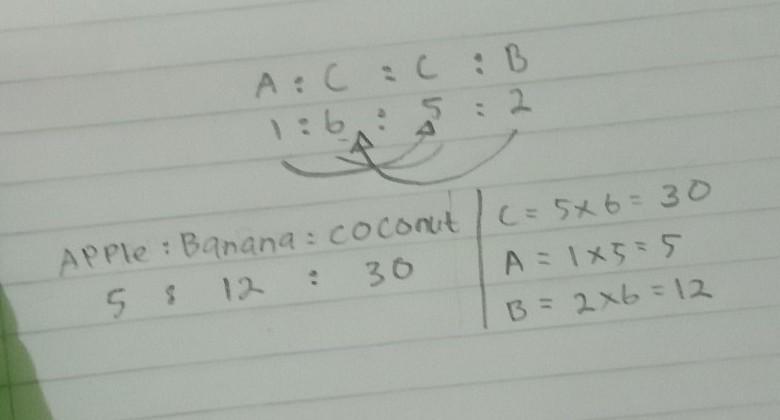 A : C : C : B
1 : 6 : 5 : 2
Apple : Banana : coconut
5 : 12 : 30
C = 5x6 = 30
A = 1x5 = 5
B = 2x6 = 12